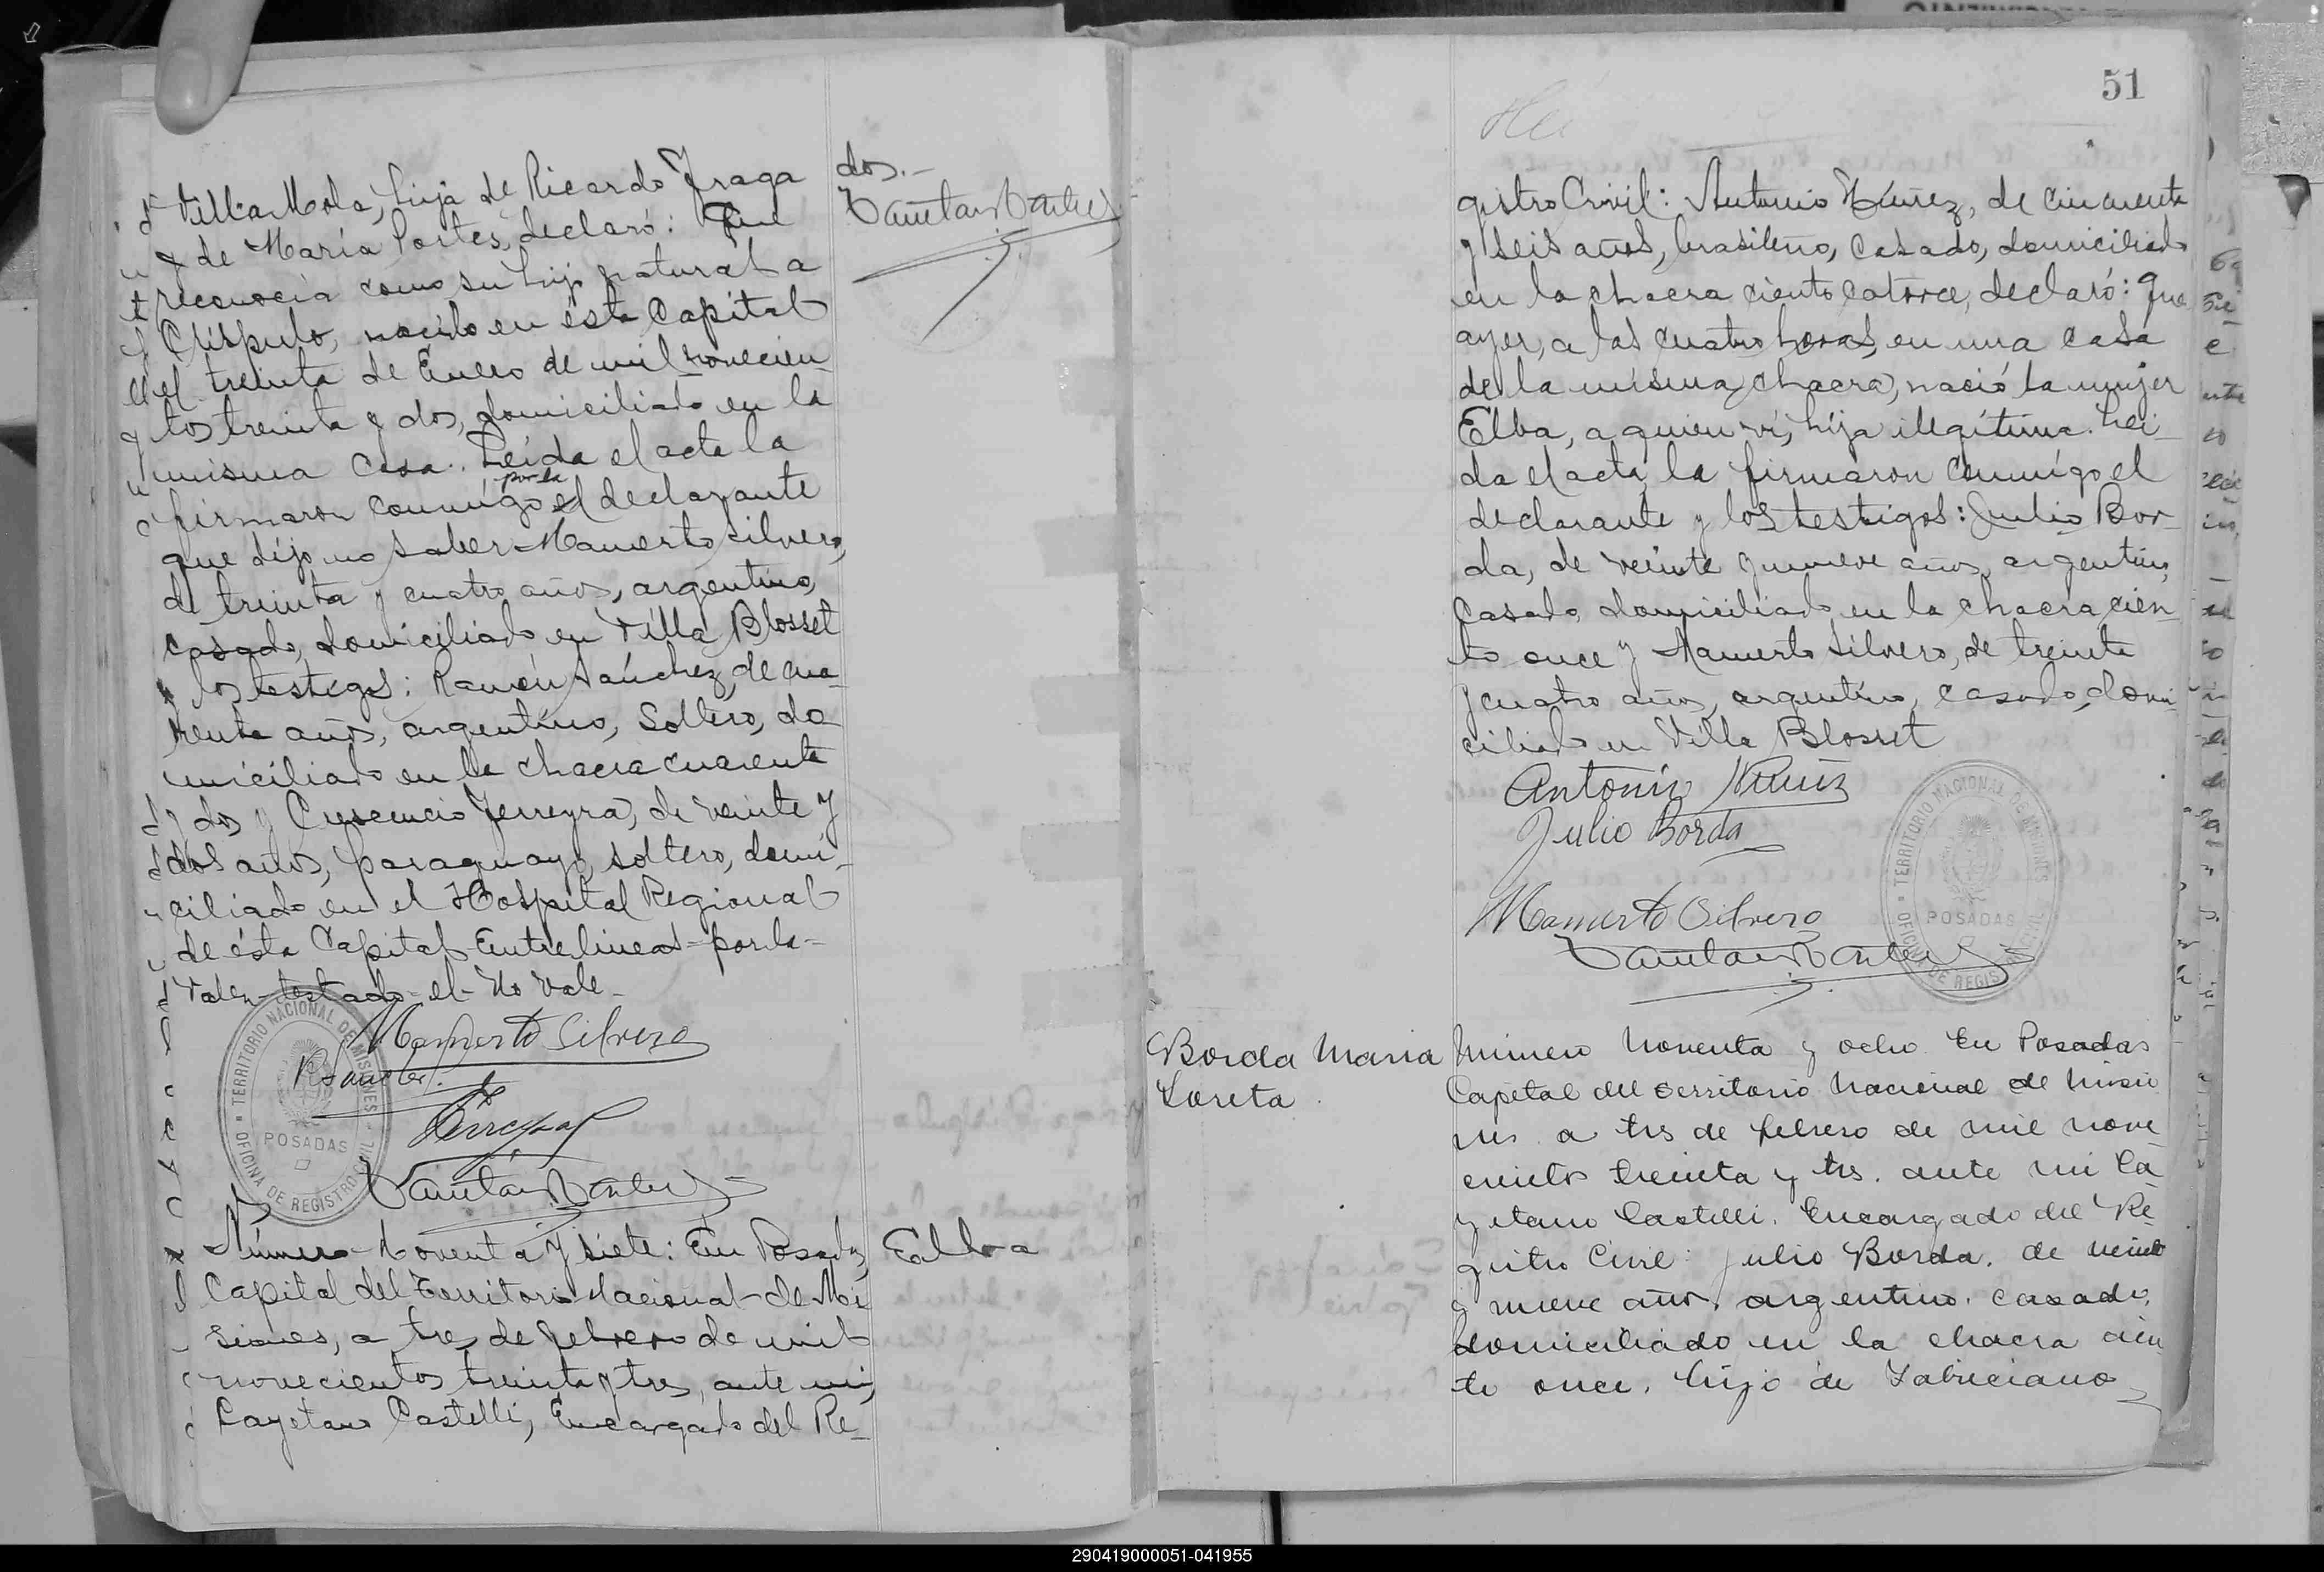 Villa Mola, hija de Ricardo Fraga
y de María Portes, declaró: Que
reconocía como su hijo natural a
Críspulo, nacido en ésta Capital
el treinta de Enero de mil novecien-
tos treinta y dos, domiciliado en la
misma casa. Leída el acta la
por la
firmaron conmigo el declarante
que dijo no saber Mamerto Silvero,
de treinta y cuatro años, argentino,
casado, domiciliado en Villa Blosset
y los testigos: Ramón Sánchez, de cua-
renta años, argentino, soltero, do
miciliado en la chacra cuarenta
y dos y Crescencio Ferreyra, de veinte y
dos años, paraguayo, soltero, domi-
ciliado en el Hospital Regional
de ésta Capital-Entrelineas-por la-
Valen-testado-el-No vale-
Mamerto Silvero
RSanchez
Ferreyra
TERRITORIO NACIONAL DE MISIONES
POSADAS
OFICINA DE REGISTRO CIVIL
Número-Noventa y siete: En Posadas,
Capital del Territorio Nacional-de Mi
siones, a tres de febrero de mil
novecientos treinta y tres, ante mi,
Cayetano Castelli, Encargado del Re-
dos.-
Elba
51
gistro Civil: Antonio Núñez, de cincuenta
y seis años, brasileño, casado, domiciliado
en la chacra ciento catorce, declaró: Que
ayer, a las cuatro horas, en una casa
de la misma chacra, nació la mujer
Elba, a quien ví, hija ilegítima. Leí-
da el acta, la firmaron conmigo el
declarante y los testigos: Julio Bor-
da, de veinte y nueve años, argentino,
casado, domiciliado en la chacra cien-
to once y Mamerto Silvero, de treinta
y cuatro años, argentino, casado, domi-
ciliado en Villa Blosset
Antonio Nuñez
Julio Borda
Mamerto Silvero
TERRITORIO NACIONAL DE MISIONES
POSADAS
OFICINA DE REGISTRO CIVIL
Borda Maria
Loreta
Número Noventa y ocho En Posadas
Capital del Territorio Nacional de Misio
nes a tres de febrero de mil nove-
cientos treinta y tres. ante mi Ca-
yetano Castelli. Encargado del Re-
gistro Civil: Julio Borda. de veinte
y nueve años. argentino. casado.
domiciliado en la chacra cien
to once. hijo de Fabriciano
290419000051-041955